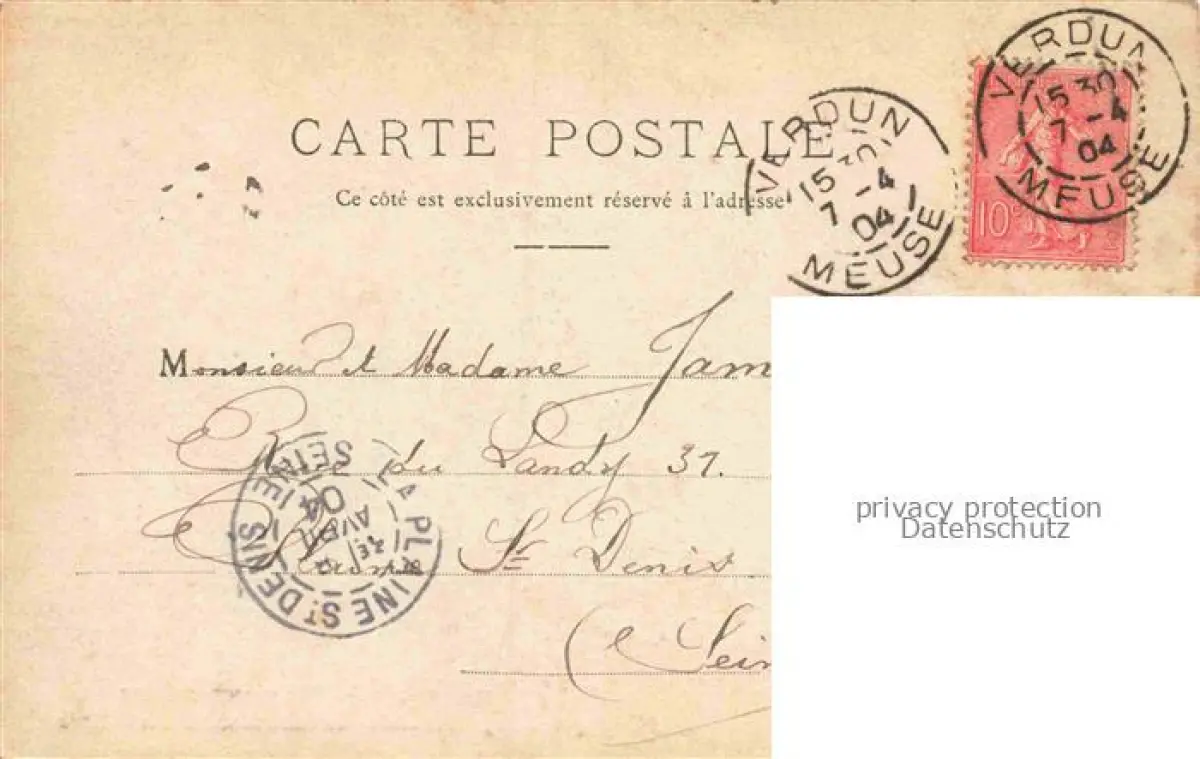 CARTE POSTALE
Ce côté est exclusivement réservé à l'adresse
VERDUN
15 30
7 -4
04
MEUSE
VERDUN
15 30
7 -4
04
MEUSE
10
Monsieur et Madame Jam
Rue du Landy 37.
Plaine St Denis
(Sein
LA PLAINE ST DENIS SEINE
AVRIL
04
privacy protection
Datenschutz